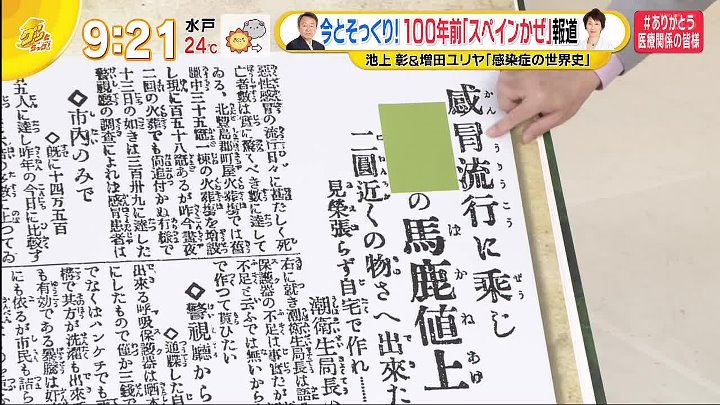 9:21
水戸
24℃
今とそっくり!100年前「スペインかぜ」報道
池上 彰&増田ユリヤ「感染症の世界史」
#ありがとう
医療関係の皆様
感冒流行に乗じ
の馬鹿値上
二圓近くの物さへ出來た
見榮張らず自宅で作れ……
潮衛生局長
右に就き潮衛生局長は語
保護器の不足は事實だが
不足と云ふでは無いから
で作つて貰ひたい
◇警視廳から
◇通牒した自
出來る呼吸保護器は晒木
にしたもので僅か三錢で
でなくはハンケチでも
穩で其方が洗濯も出來て
も有効である
にも依るが市民も詰ら
悪性感冒の流行日々に甚だしく死
亡者數は實に驚くべき數に達して
北豐島郡町屋火葬塲では舊
臘中三十五竈一棟の火葬塲を增設
し現に百五十八竈あるが昨今晝夜
二回の火葬でも尚追付かぬ行樣で
十三日の如きは三百卅九に達した
警視廳の調査によれば感冒患者は
◇市内のみで
◇既に十四万五百
五人に達し昨年の今日に比較す